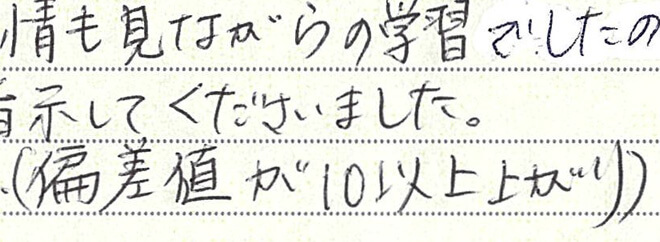 情も見ながらの学習でしたの
示してくださいました。
(偏差値が10以上上がり)